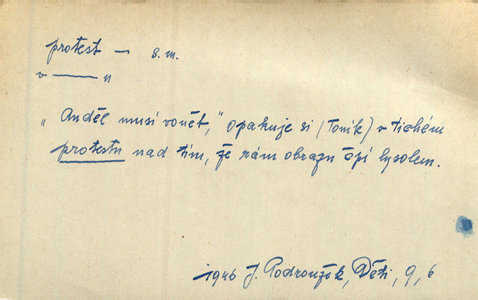 protest — s. m.
v ——— u
„Anděl musí vonět,“ opakuje si (Toník) v tichém
protestu nad tím, že rám obrazu čpí lysolem.
1946 J. Podroužek, Děti, 9, 6